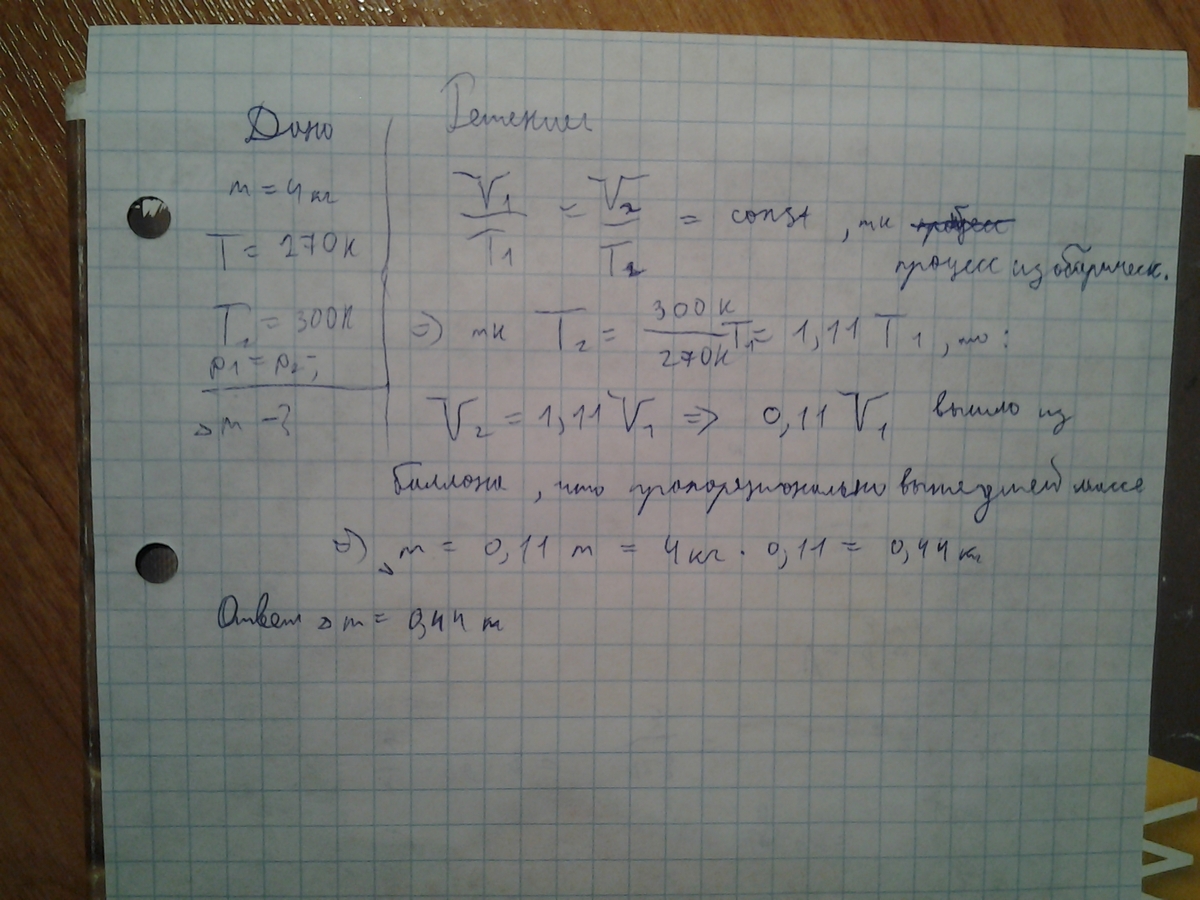 Дано
Решение
m = 4 кг
T = 270К
T₂ = 300К
p₁ = p₂;
Δm - ?
V₁/T₁ = V₂/T₂ = const, тк
процесс изобарическ.
=> тк T₂ = 300К/270К T₁ = 1,11 T₁, то:
V₂ = 1,11 V₁ => 0,11 V₁ вышло из
баллона, что пропорционально вышедшей массе
=> Δm = 0,11 m = 4кг · 0,11 = 0,44 кг
Ответ Δm = 0,44